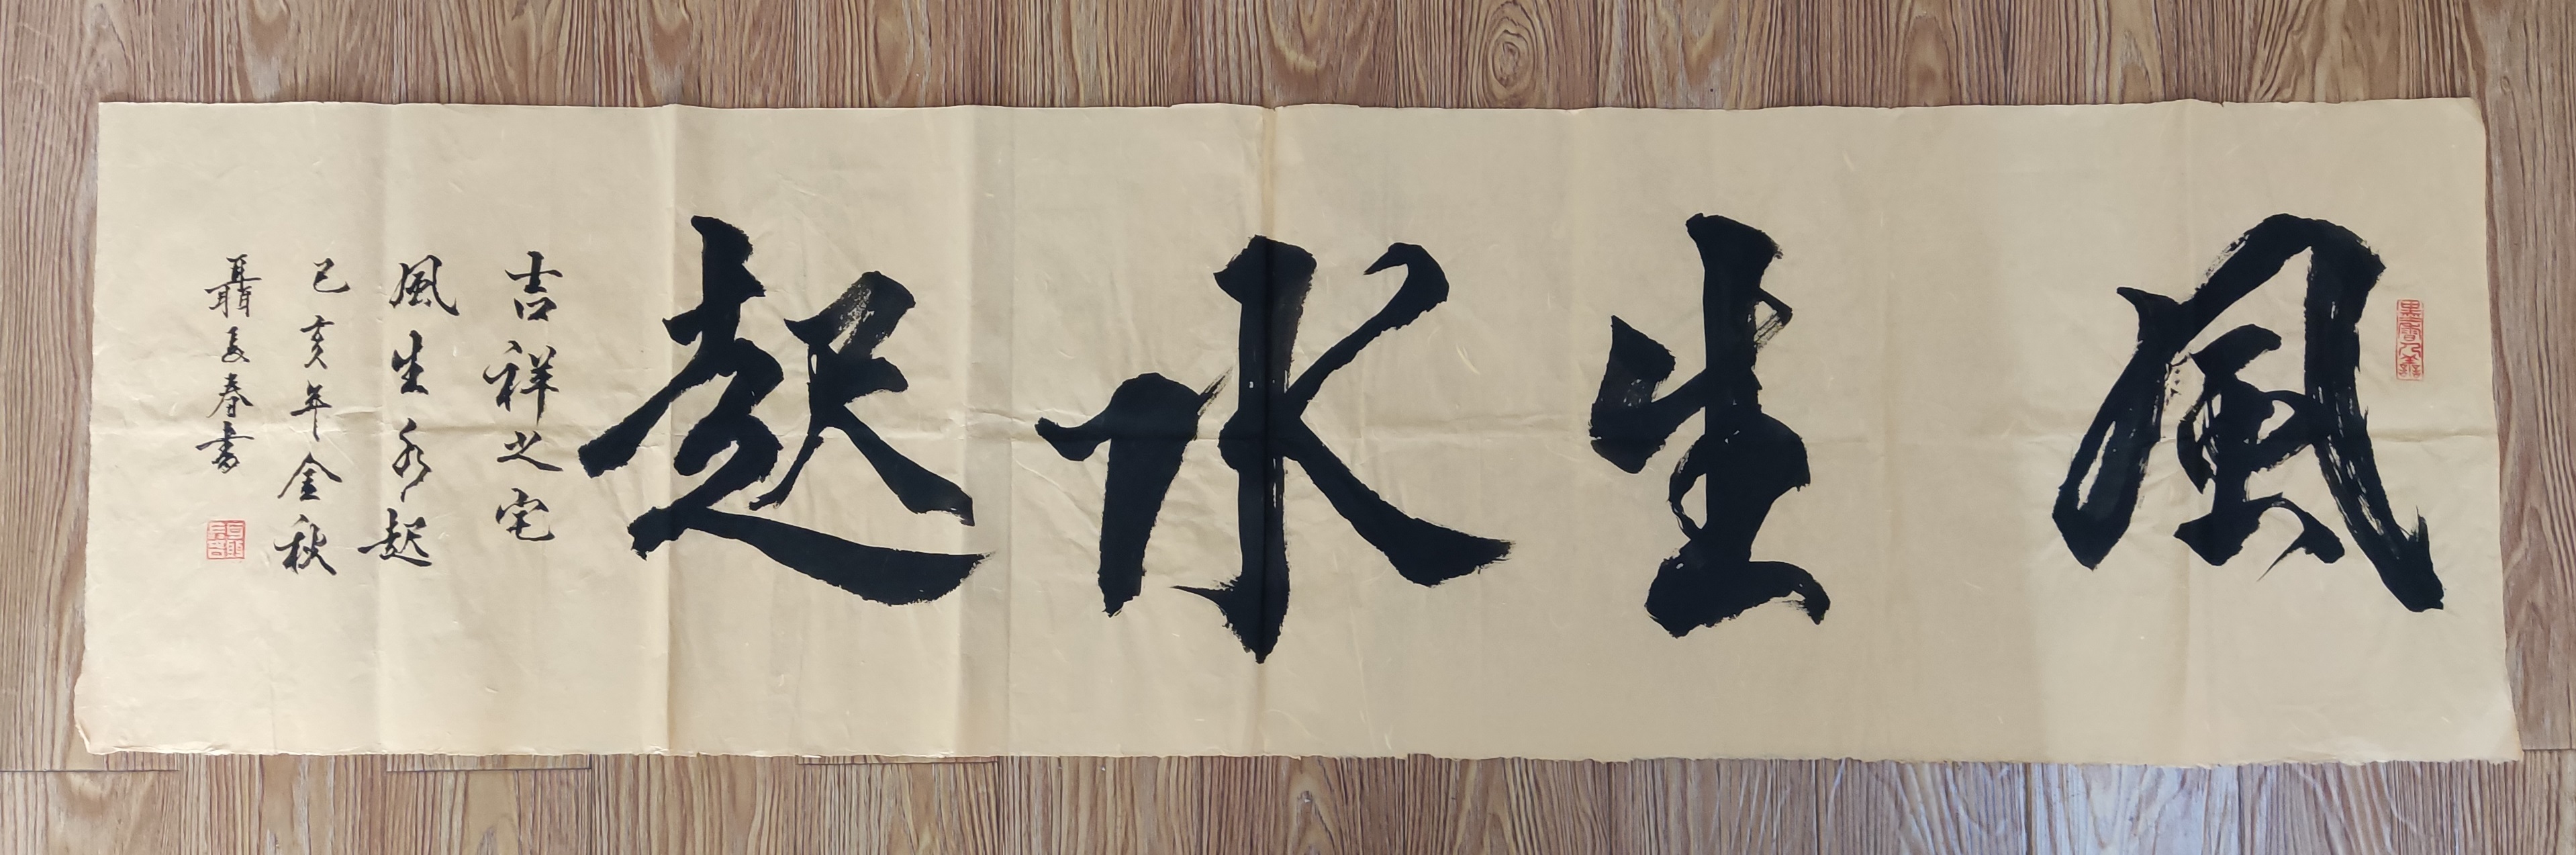 風生水起
吉祥之宅
風生水起
己亥年金秋
聶友春书